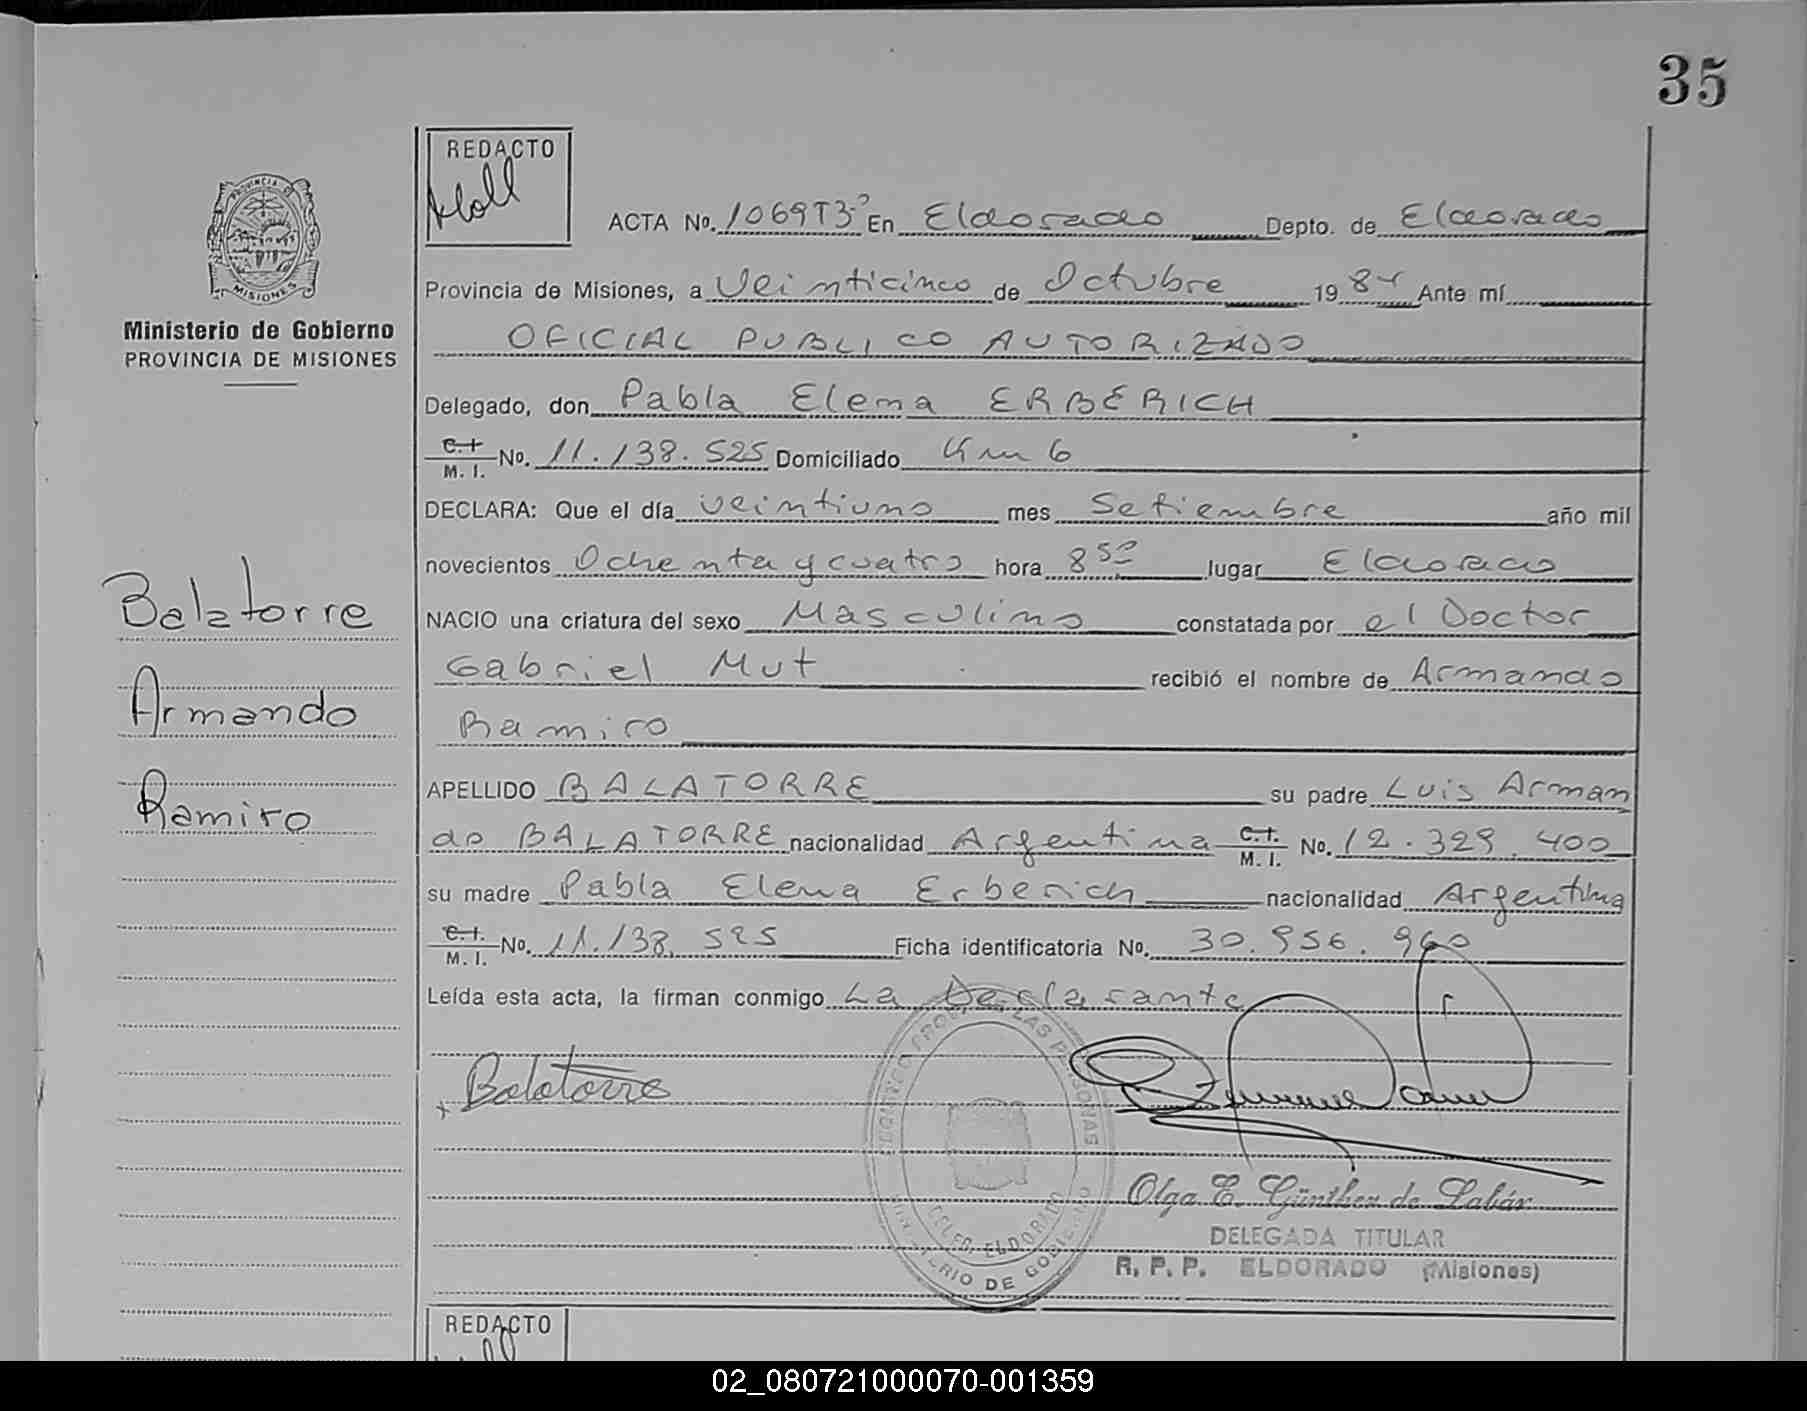 35
REDACTO
PROVINCIA DE
MISIONES
Ministerio de Gobierno
PROVINCIA DE MISIONES
ACTA No. 1069T3º En Eldorado Depto. de Eldorado
Provincia de Misiones, a Veinticinco de Octubre 1984 Ante mí
OFICIAL PUBLICO AUTORIZADO
Delegado, don Pabla Elena ERBERICH
C.I. M. I. No. 11.138.525 Domiciliado Km 6
DECLARA: Que el día veintiuno mes Setiembre año mil
novecientos Ochenta y cuatro hora 8 50 lugar Eldorado
NACIO una criatura del sexo Masculino constatada por el Doctor
Gabriel Mut recibió el nombre de Armando
Ramiro
APELLIDO BALATORRE su padre Luis Arman
do BALATORRE nacionalidad Argentina C.I. M. I. No. 12.329.400
su madre Pabla Elena Erberich nacionalidad Argentina
C.I. M. I. No. 11.138.525 Ficha identificatoria No. 30.956.960
Leída esta acta, la firman conmigo La Declarante
Balatorre
Armando
Ramiro
x Balatorre
Olga E. Günther de Labár
DELEGADA TITULAR
R. P. P. ELDORADO (Misiones)
REDACTO
02_080721000070-001359